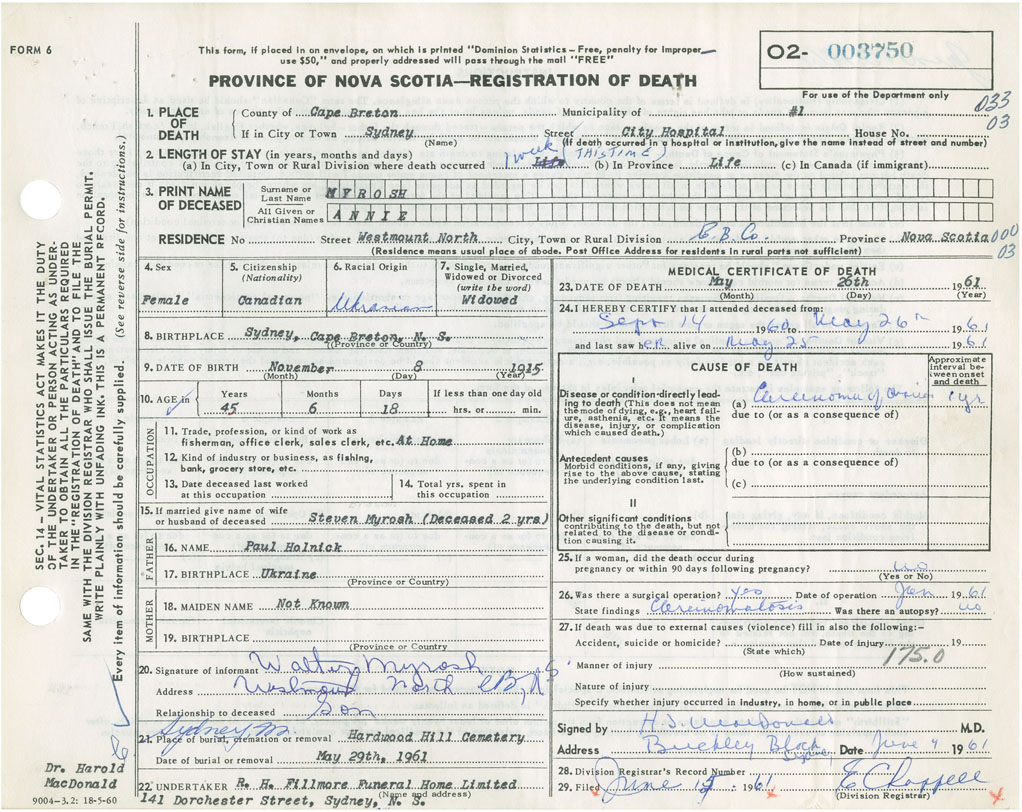 FORM 6
This form, if placed in an envelope, on which is printed "Dominion Statistics – Free, penalty for improper
use $50," and properly addressed will pass through the mail "FREE"
PROVINCE OF NOVA SCOTIA—REGISTRATION OF DEATH
O2- 003750
For use of the Department only
033
03
1. PLACE OF DEATH
County of Cape Breton Municipality of #1
If in City or Town Sydney Street City Hospital House No.
(Name) (If death occurred in a hospital or institution, give the name instead of street and number)
2. LENGTH OF STAY (in years, months and days) 1 week (THIS TIME)
(a) In City, Town or Rural Division where death occurred Life (b) In Province Life (c) In Canada (if immigrant)
3. PRINT NAME OF DECEASED
Surname or Last Name MYROSH
All Given or Christian Names ANNIE
RESIDENCE No Street Westmount North City, Town or Rural Division C.B.Co. Province Nova Scotia 000
(Residence means usual place of abode. Post Office Address for residents in rural parts not sufficient) 03
4. Sex
Female
5. Citizenship
(Nationality)
Canadian
6. Racial Origin
Ukranian
7. Single, Married, Widowed or Divorced
(write the word)
Widowed
8. BIRTHPLACE Sydney, Cape Breton, N. S.
(Province or Country)
9. DATE OF BIRTH November 8 1915
(Month) (Day) (Year)
10. AGE in Years Months Days If less than one day old
45 6 18 hrs. or min.
OCCUPATION
11. Trade, profession, or kind of work as
fisherman, office clerk, sales clerk, etc. At Home
12. Kind of industry or business, as fishing,
bank, grocery store, etc.
13. Date deceased last worked
at this occupation
14. Total yrs. spent in
this occupation
15. If married give name of wife
or husband of deceased Steven Myrosh (Deceased 2 yrs)
FATHER
16. NAME Paul Holnick
17. BIRTHPLACE Ukraine
(Province or Country)
MOTHER
18. MAIDEN NAME Not Known
19. BIRTHPLACE
(Province or Country
20. Signature of informant Walter Myrosh
Address Westmount North CB, NS
Relationship to deceased Son
Sydney M.
21. Place of burial, cremation or removal Hardwood Hill Cemetery
Date of burial or removal May 29th, 1961
22. UNDERTAKER R. H. Fillmore Funeral Home Limited
(Name and address)
141 Dorchester Street, Sydney, N. S.
MEDICAL CERTIFICATE OF DEATH
23. DATE OF DEATH May 26th 1961
(Month) (Day) (Year)
24. I HEREBY CERTIFY that I attended deceased from:
Sept 14 1960 to May 26th 1961
and last saw her alive on May 25 1961
CAUSE OF DEATH
Approximate interval between onset and death
I
Disease or condition directly leading to death (This does not mean the mode of dying, e.g., heart failure, asthenia, etc. It means the disease, injury, or complication which caused death.)
(a) Carcinoma of Ovaries 1 yr
due to (or as a consequence of)
Antecedent causes
Morbid conditions, if any, giving rise to the above cause, stating the underlying condition last.
(b)
due to (or as a consequence of)
(c)
II
Other significant conditions contributing to the death, but not related to the disease or condition causing it.
25. If a woman, did the death occur during
pregnancy or within 90 days following pregnancy? no
(Yes or No)
26. Was there a surgical operation? yes Date of operation Jan 1961
State findings Carcinomatosis Was there an autopsy? no
27. If death was due to external causes (violence) fill in also the following:–
Accident, suicide or homicide? Date of injury 19
(State which) 175.0
Manner of injury
(How sustained)
Nature of injury
Specify whether injury occurred in industry, in home, or in public place
Signed by H.J. MacDonald M.D.
Address Buckley Block Sydney Date June 9 1961
28. Division Registrar's Record Number
29. Filed June 1961 E Chappell
(Division Registrar)
SEC. 14 – VITAL STATISTICS ACT MAKES IT THE DUTY
OF THE UNDERTAKER OR PERSON ACTING AS UNDER-
TAKER TO OBTAIN ALL THE PARTICULARS REQUIRED
IN THE "REGISTRATION OF DEATH" AND TO FILE THE
SAME WITH THE DIVISION REGISTRAR WHO SHALL ISSUE THE BURIAL PERMIT.
WRITE PLAINLY WITH UNFADING INK. THIS IS A PERMANENT RECORD.
Every item of information should be carefully supplied. (See reverse side for instructions.)
Dr. Harold
MacDonald
9004-3.2: 18-5-60